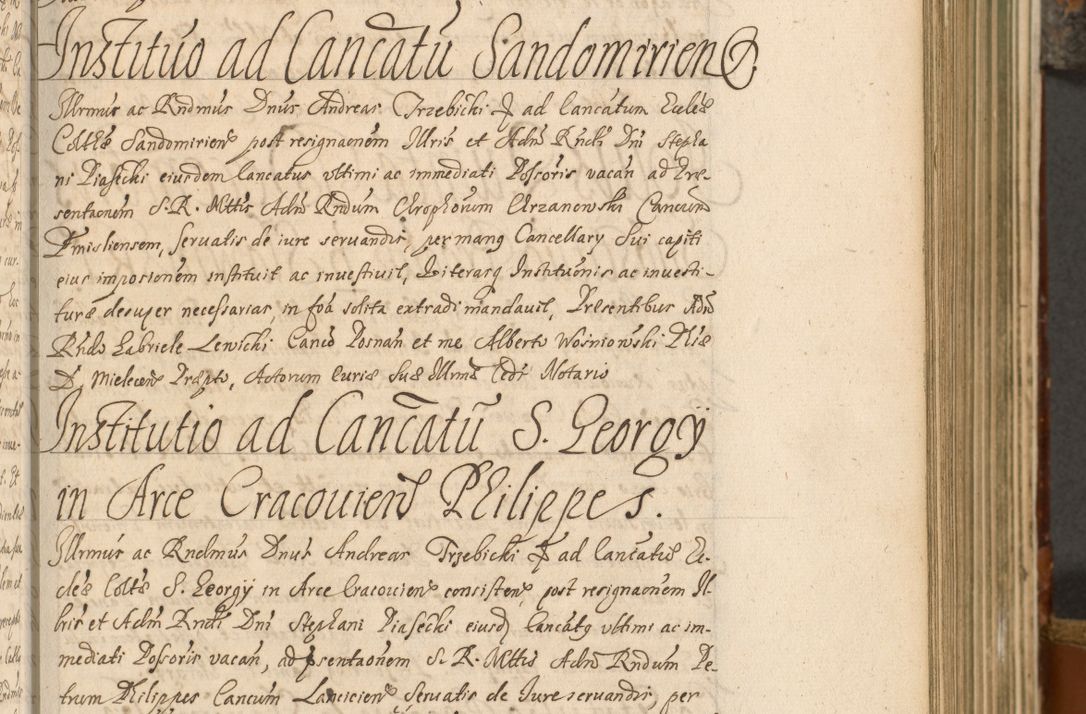 Instituo ad Cancatū Sandomirien
Illrmus ac Rndmus Dnus Andreas Trzebicki ad Cancatum Eccles
Colltæ Sandomirien post resignaonem Illris et Adm Rndi Dni Stepha
ni Piasecki eiusdem Cancatus vltimi ac immediati Possoris vacan ad Præ
sentaonem S. R. Mttis Adm Rndum Chrophorum Chrzanowski Cancum
Præmisliensem, servatis de iure servandis, per manq Cancellary Sui capiti
eius imposionem instituit ac investivit, Literasq Institutionis ac investi-
turæ desuper necessarias, in foa solita extradi mandavit, Præsentibus Adm
Rndo Gabriele Lewicki Canco Posnan et me Alberto Wosniowski Phiæ
D. Mielecen Præpto, Actorum Curiæ Suæ Illrmæ Celdi Notario
Institutio ad Cancatū S. Georgÿ
in Arce Cracouien Philippes.
Illrmus ac Rndmus Dnus Andreas Trzebicki ad Cancatū Ec-
cles Colltæ S. Georgÿ in Arce Cracouien consisten, post resignaonem Il-
lris et Adm Rndi Dni Stephani Piasecki eiusd Cancatq vltimi ac im-
mediati Possoris vacan, ad psentaonem S. R. Mttis Adm Rndum Pe-
trum Philippes Cancum Lancicien servatis de Iure servandis, per